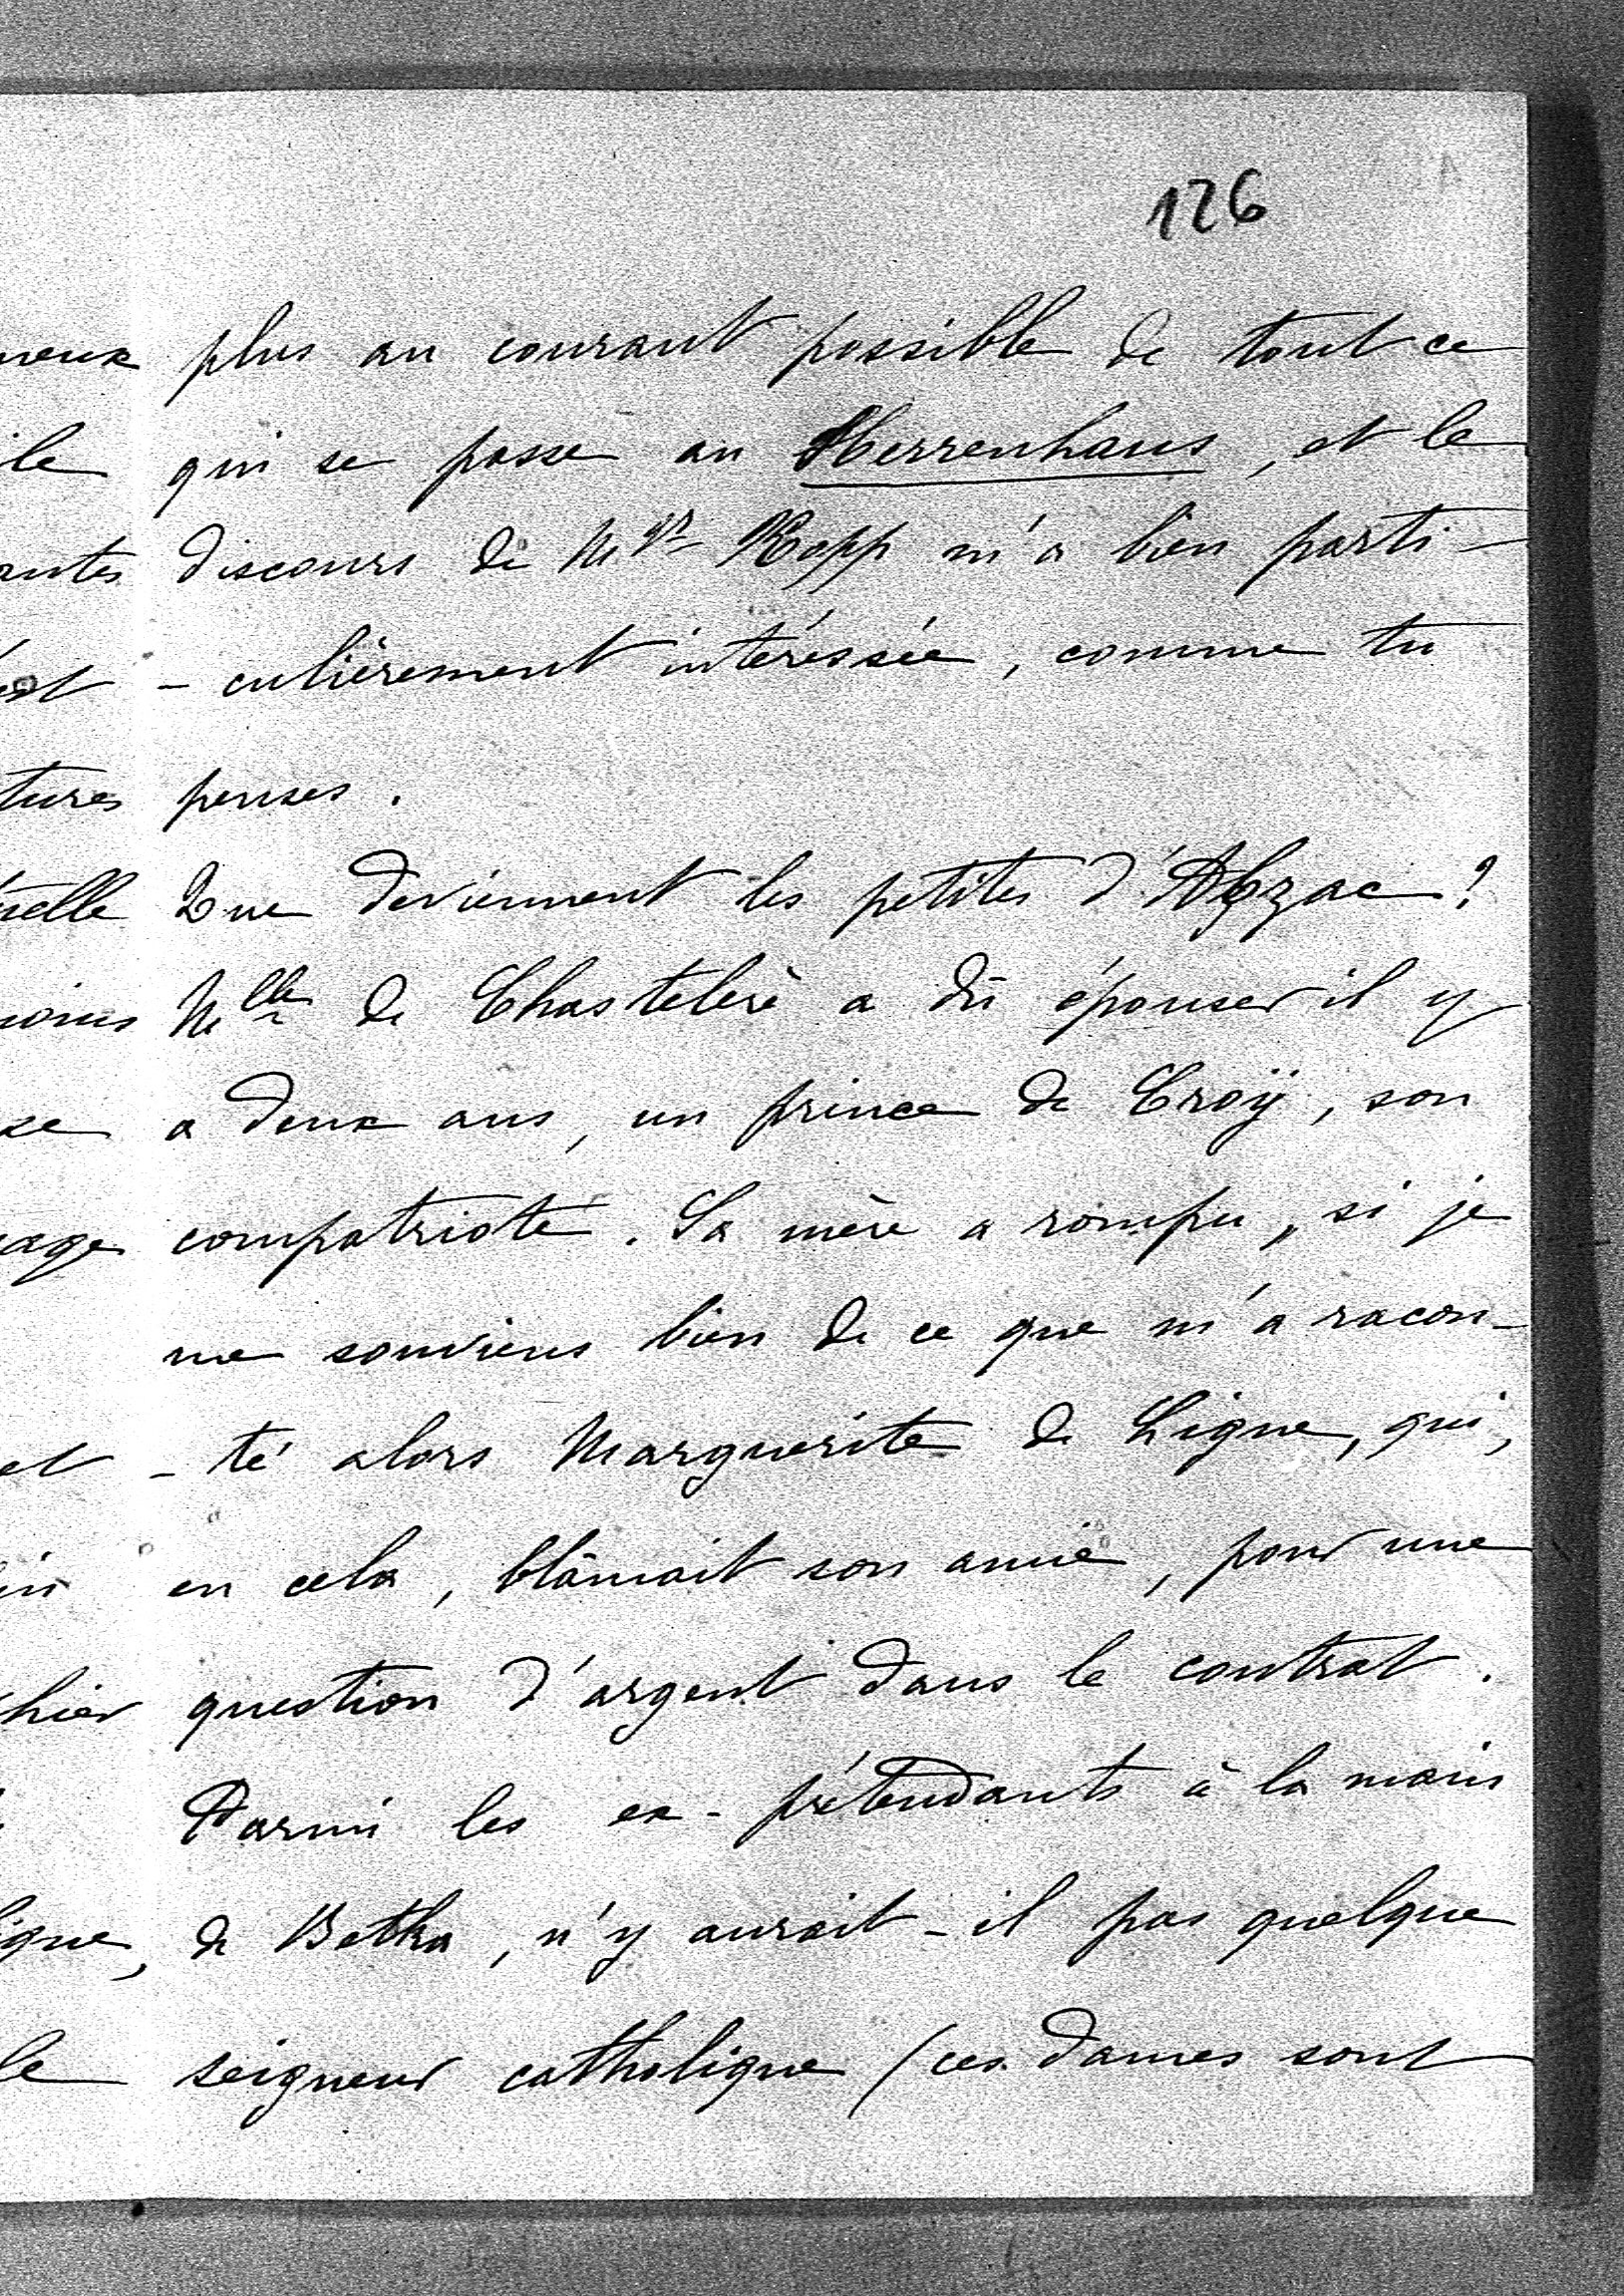 126
plus au courant possible de tout ce
qui se passe au Herrenhaus, et le
discours de Mgr Kopp m'a bien parti-
-culièrement intéressée, comme tu
penses.
Que deviennent les petites d'Abzac ?
Mlle de Chastelerè a dû épouser il y
a deux ans, un prince de Croÿ, son
compatriote. Sa mère a rompu, si je
me souviens bien de ce que m'a racon-
-té alors Marguerite de Ligne, qui,
en cela, blâmait son amie, pour une
question d'argent dans le contrat.
Parmi les ex-prétendants à la main
de Betka, n'y aurait-il pas quelque
seigneur catholique (ces dames sont